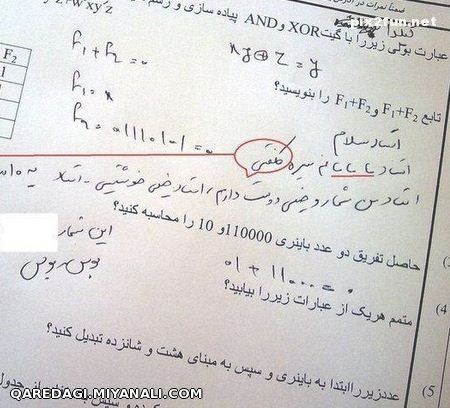 pix2fun.net
عبارت بولی زیررا با گیت XOR و AND پیاده سازی و رسم
xy⊕Z = y
F₂
1
1
F₁+F₂ = 0
تابع F₁+F₂ و F₁+F₂ را بنویسید؟
F₁ = x
F₂ = 01110101 = 0
استاد سلام
استاد بابام سره کلفتی
استاد من شمارو خیلی دوست دارم، استاد خیلی خوشتیپی - استاد یه
حاصل تفریق دو عدد باینری 110000و 10 را محاسبه کنید؟
این شمار
01 + 11000 = 0
بوس بوس
متمم هریک از عبارات زیررا بیابید؟
(4
عددزیررا ابتدا به باینری و سپس به مبنای هشت و شانزده تبدیل کنید؟
(5
از جدول
QAREDAGI.MIYANALI.COM